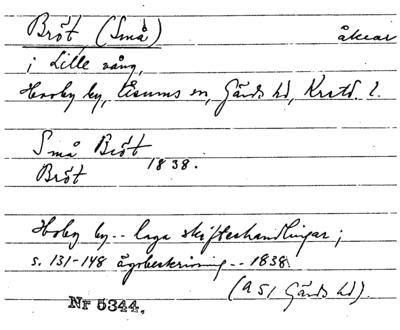 Bröt (Små) åkrar
i Lille vång,
Hovby by, Åsums sn, Gärds hd, Krstd. l.
Små Bröt 1838.
Bröt
Hoby by.. laga skifteshandlingar;
s. 131-148 ägobeskrivning.. 1838
(A 51 Gärds hd).
Nr 5344.